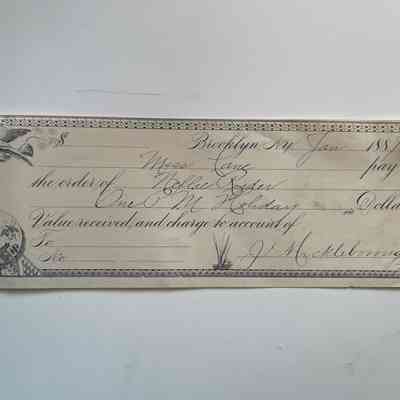 $ Brooklyn, NY, Jan 188
Miss Lane pay
the order of Nellie Rider
One P. M. Holiday Dolla
Value received, and charge to account of
To
No. J. Mickleboroug